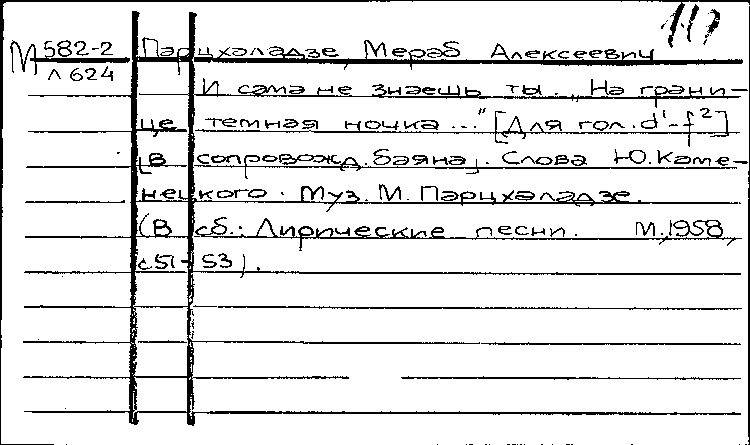 117
М 582-2 Парцхаладзе, Мераб Алексеевич
Л 624
И сама не знаешь ты. „На грани-
це темная ночка..." [Для гол. d¹-f²]
[в сопровожд. баяна]. Слова Ю. Каме-
нецкого. Муз. М. Парцхаладзе.
(В сб.: Лирические песни. М., 1958,
с.51-53).